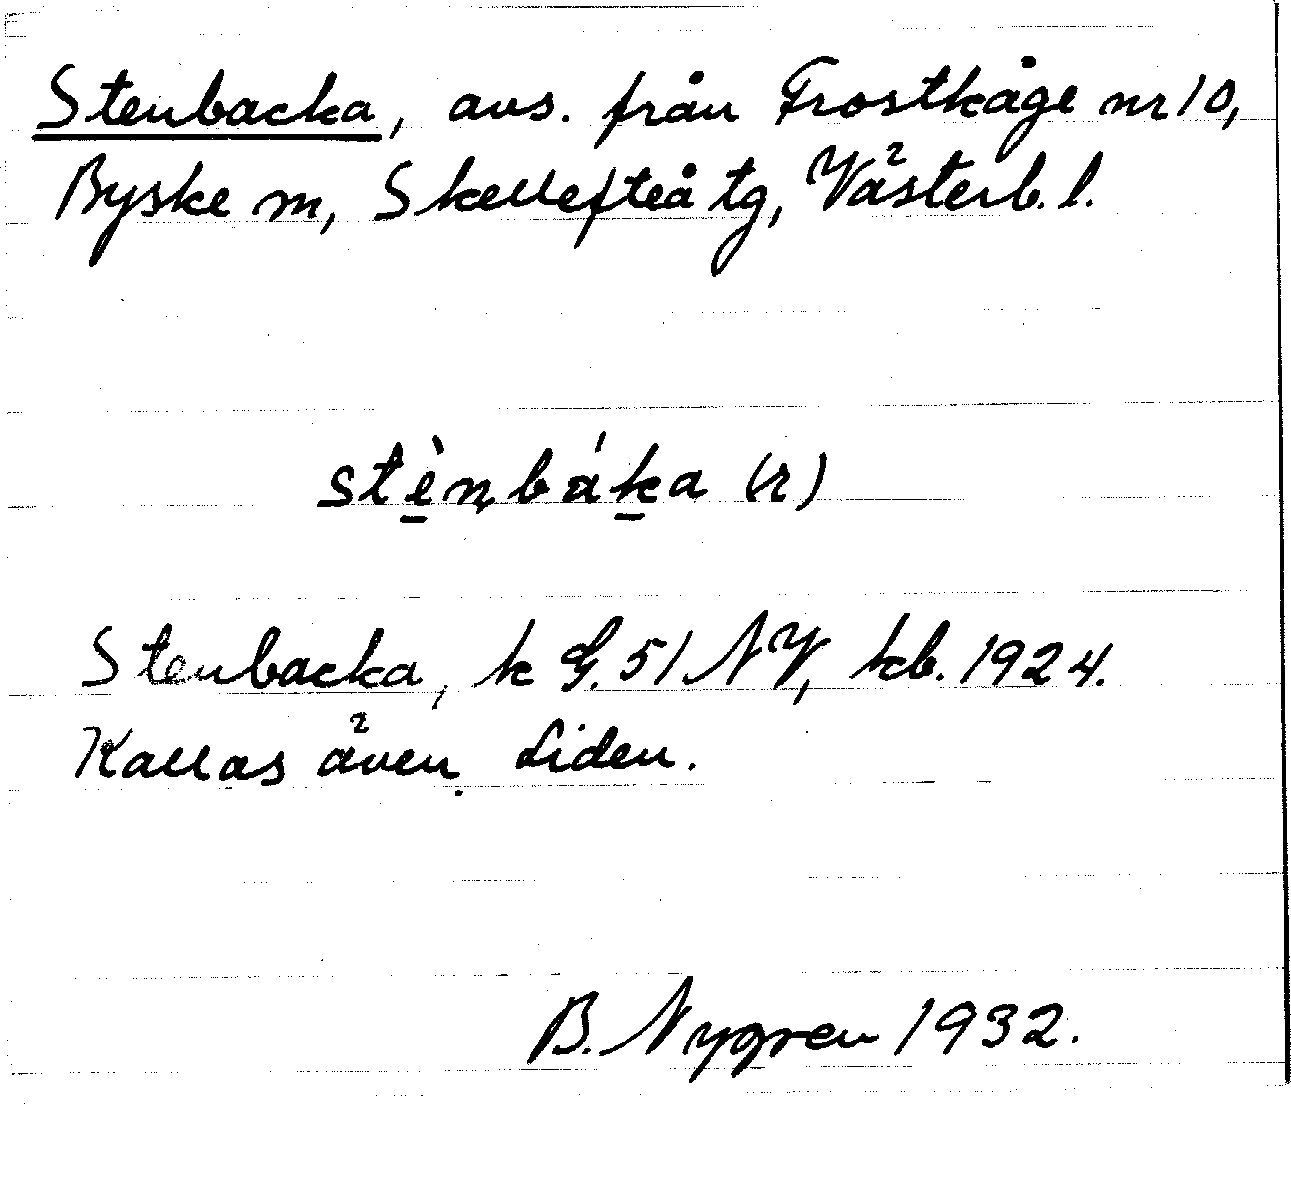 Stenbacka, avs. från Frostkåge nr 10,
Byske sn, Skellefteå tg, Västerb. l.
stè̠nbáḵa (r)
Stenbacka, k G. 51 NV, kb. 1924.
Kallas även Liden.
B. Nygren 1932.